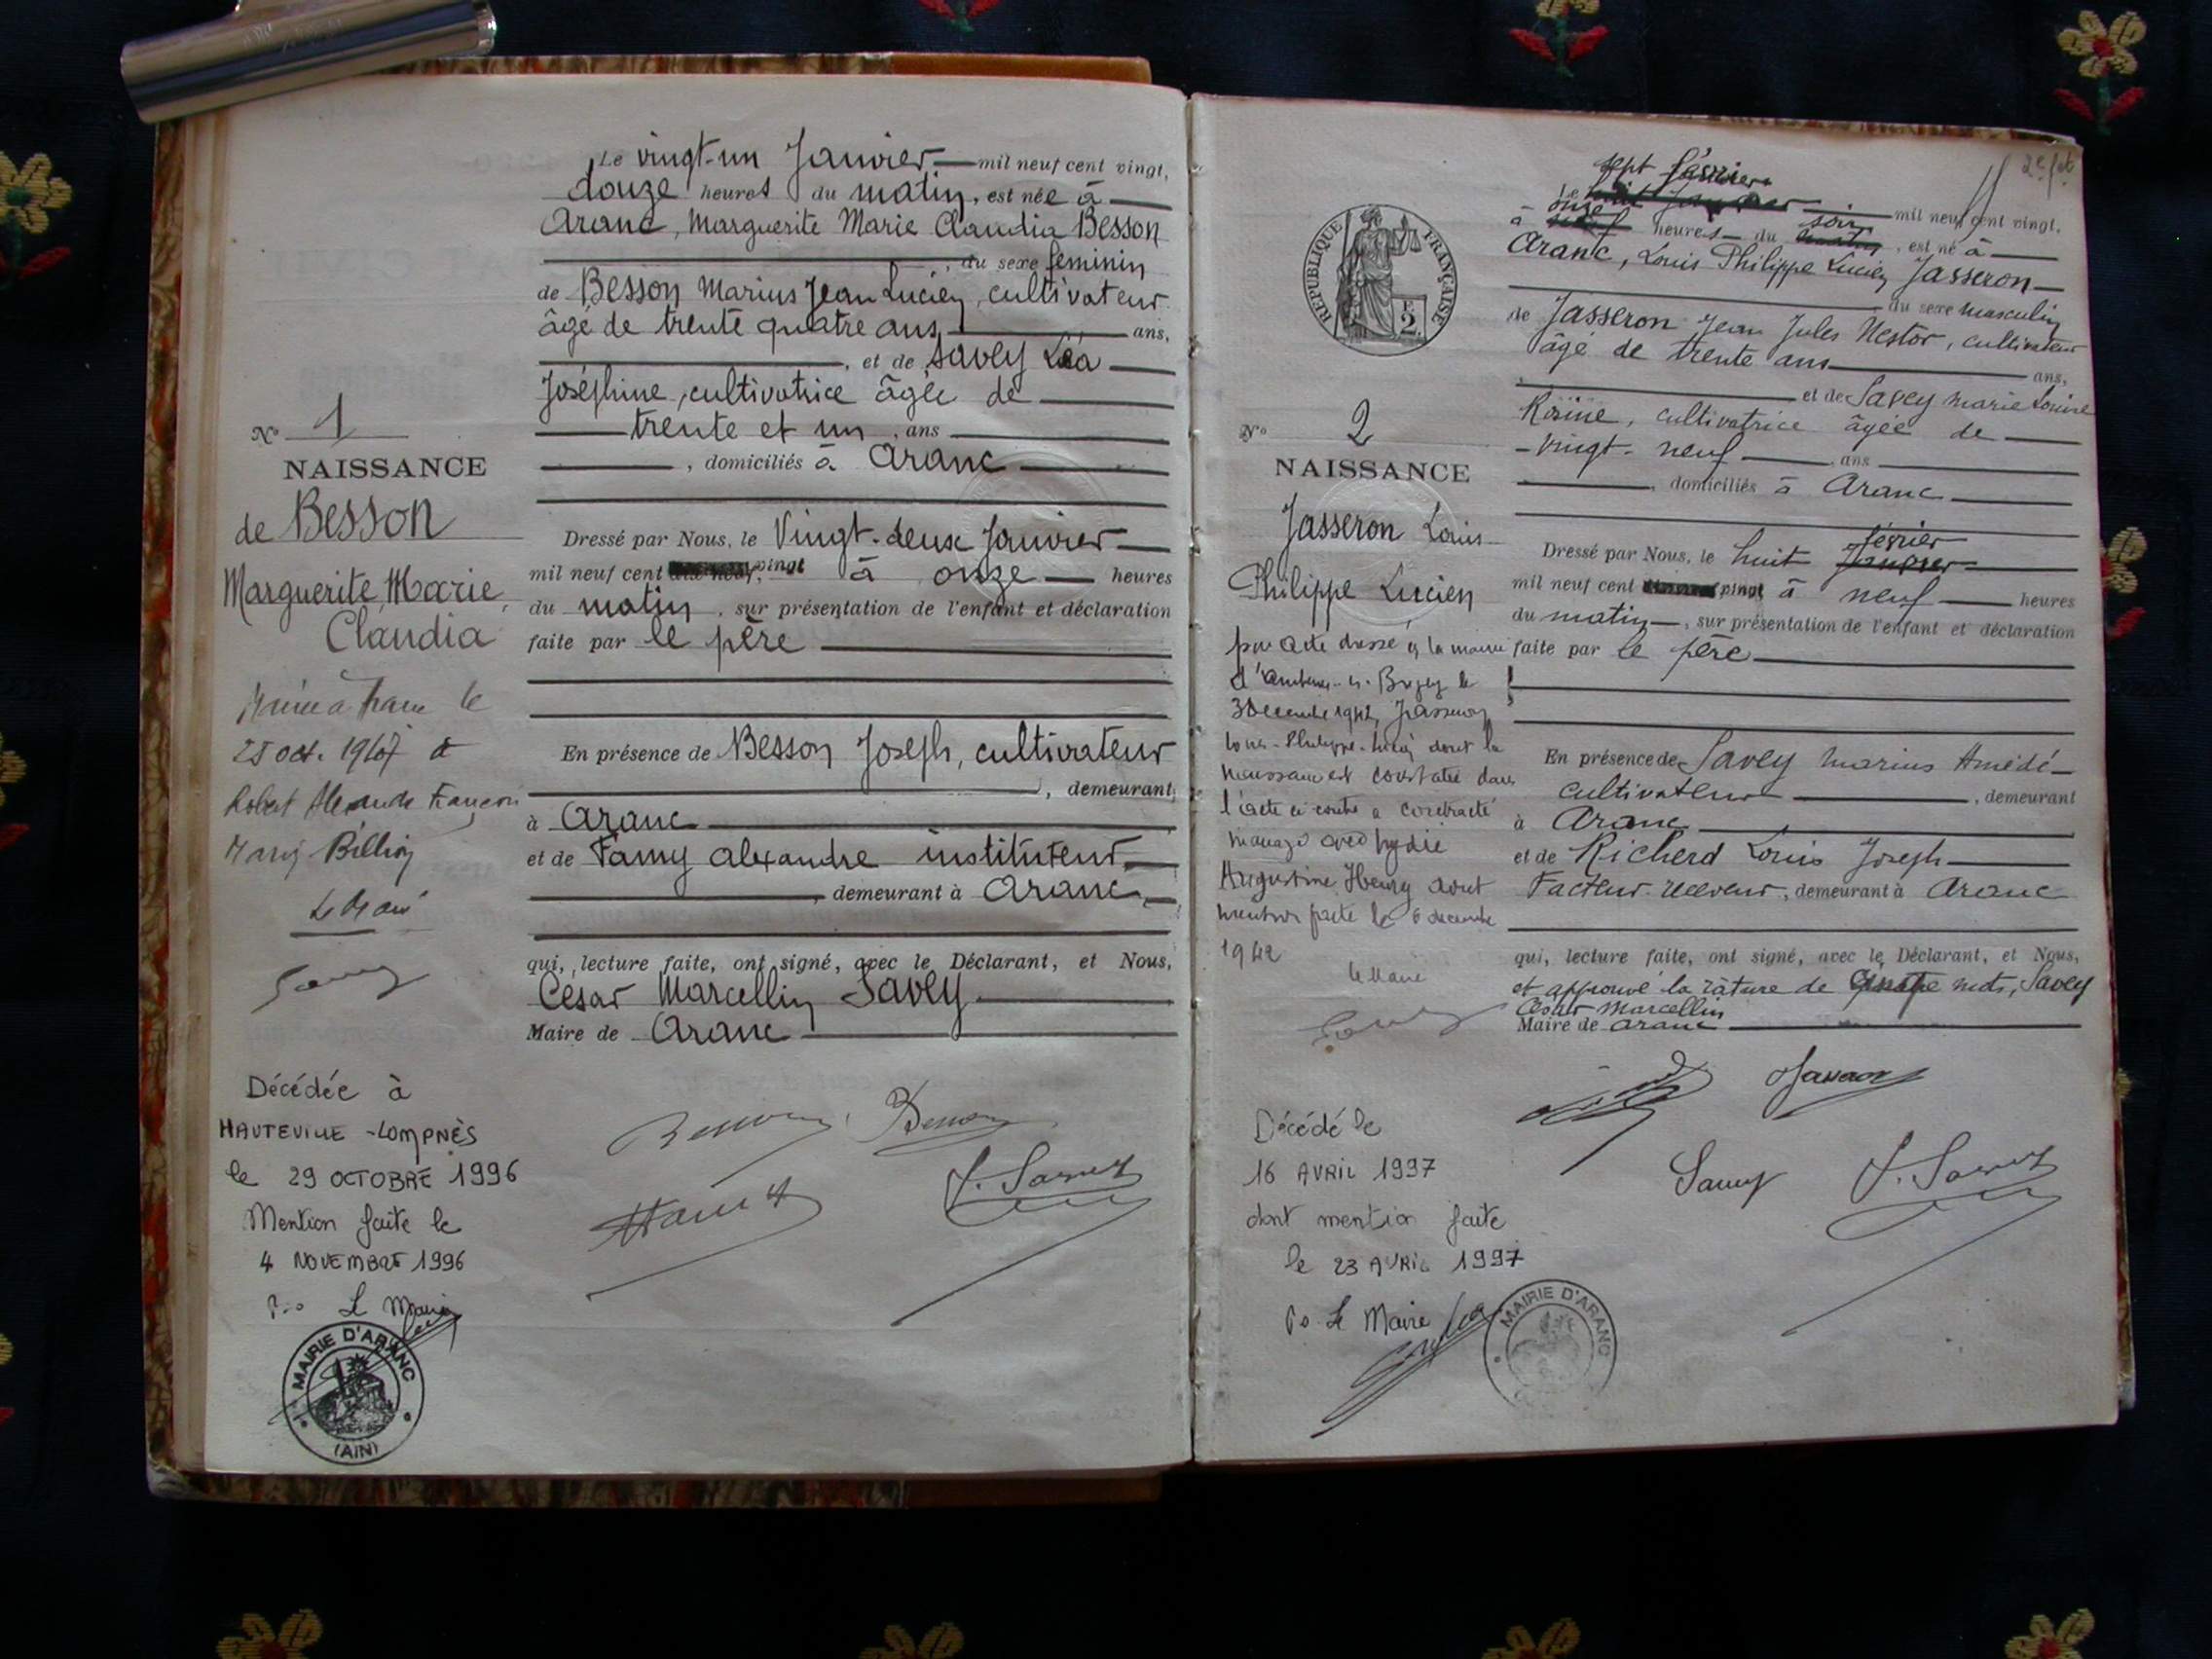 Le vingt-un Janvier mil neuf cent vingt,
douze heures du matin, est née à
Aranc, Marguerite Marie Claudia Besson
, du sexe féminin
de Besson Marius Jean Lucien, cultivateur
âgé de trente quatre ans, ans,
, et de Savey Léa
Joséphine, cultivatrice âgée de
trente et un, ans
, domiciliés à Aranc
Nº 1
NAISSANCE
de Besson
Marguerite, Marie,
Claudia
Dressé par Nous, le Vingt-deux Janvier
mil neuf cent vingt à onze heures
du matin, sur présentation de l'enfant et déclaration
faite par le père
Mariée à le
28 oct. 1967 à
Robert Alexandre François
Billion
Le Maire
En présence de Besson Joseph, cultivateur
, demeurant
à Aranc
et de Famy Alexandre instituteur
demeurant à Aranc
qui, lecture faite, ont signé, avec le Déclarant, et Nous,
César Marcellin Savey
Maire de Aranc
Décédée à
HAUTEVILLE-LOMPNÈS
le 29 OCTOBRE 1996
Mention faite le
4 NOVEMBRE 1996
Po Le Maire
MAIRIE D'ARANC
(AIN)
Besson
Besson
J. Savey
2e fet
RÉPUBLIQUE FRANÇAISE
2
sept février
Le mil neuf cent vingt,
onze soir
à neuf heures du matin, est né à
Aranc, Louis Philippe Lucien Jasseron
du sexe masculin
de Jasseron Jean Jules Nestor, cultivateur
âgé de trente ans ans,
et de Savey Marie Louise
Rosine, cultivatrice âgée de
vingt-neuf, ans
, domiciliés à Aranc
Nº 2
NAISSANCE
Jasseron Louis
Philippe Lucien
février
Dressé par Nous, le huit Janvier
mil neuf cent vingt à neuf heures
du matin, sur présentation de l'enfant et déclaration
faite par le père
par acte dressé à la mairie
d'Ambérieu-en-Bugey le
3 décembre 1942, Jasseron
Louis-Philippe-Lucien dont la
naissance est constatée dans
l'acte ci-contre a contracté
mariage avec Lydie
Augustine Henry dont
mention faite le 6 décembre
1942
le Maire
En présence de Savey Marius Amédé
cultivateur, demeurant
à Aranc
et de Richerd Louis Joseph
Facteur-receveur, demeurant à Aranc
qui, lecture faite, ont signé, avec le Déclarant, et Nous,
et approuvé la rature de quatre mots, Savey
César Marcellin
Maire de Aranc
Jasseron
Savey
J. Savey
Décédé le
16 AVRIL 1997
dont mention faite
le 23 AVRIL 1997
Po Le Maire
MAIRIE D'ARANC